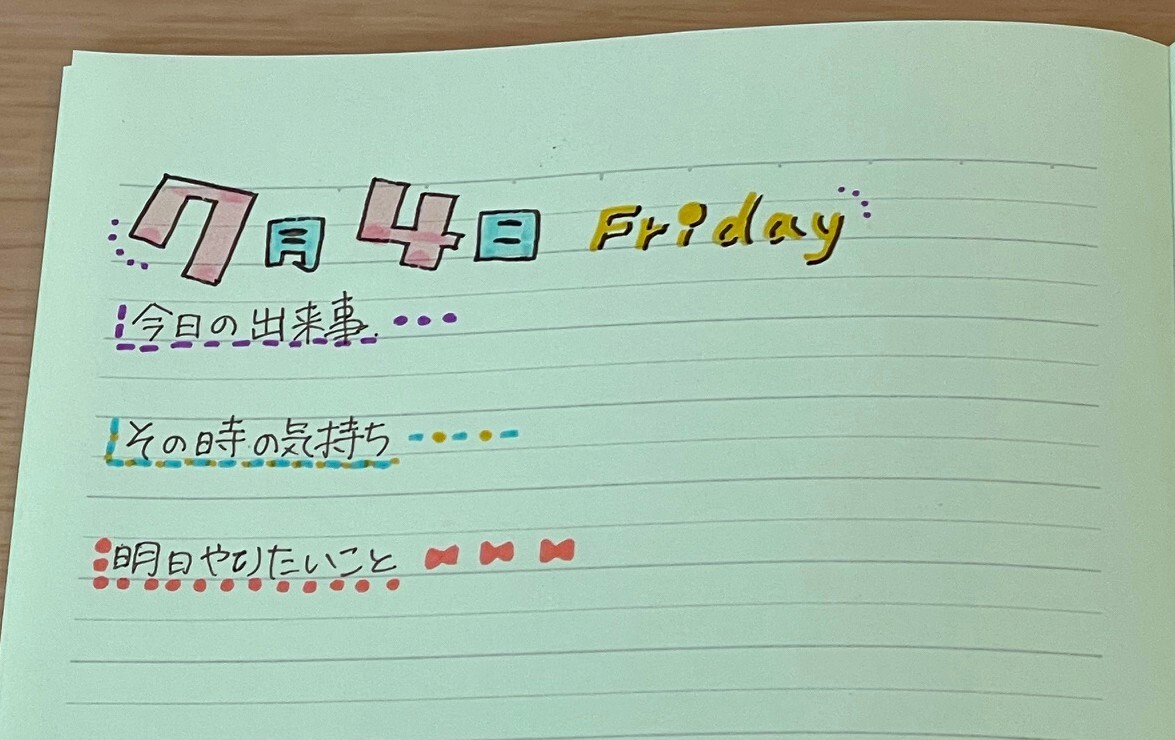 7月4日 Friday
今日の出来事...
その時の気持ち
明日やりたいこと